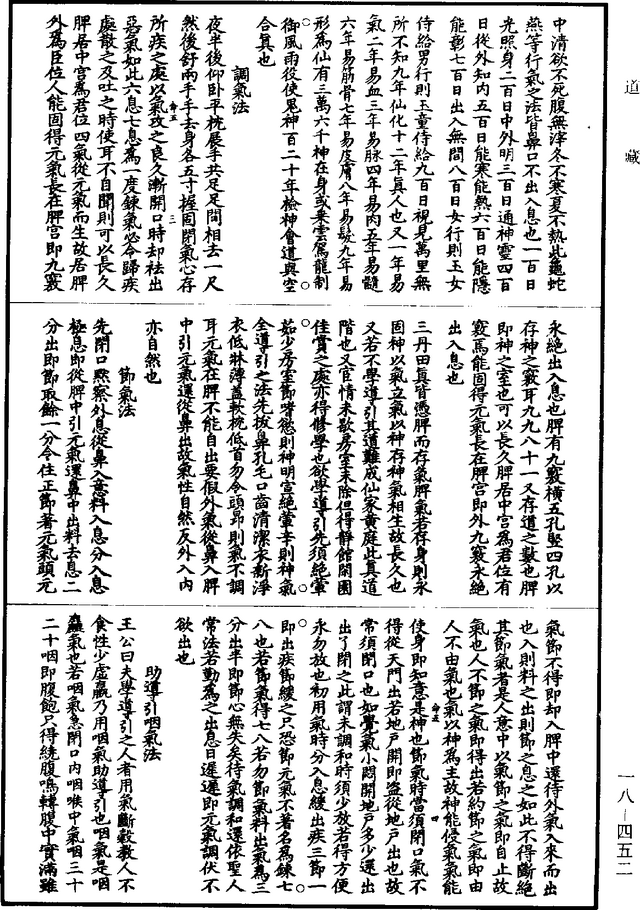 道藏
中清欲不死腹無滓冬不寒夏不熱此龜蛇
燕等行氣之法皆鼻口不出入息也一百日
光照身二百日中外明三百日通神靈四百
日從外知内五百日能寒能熱六百日能隱
能彰七百日出入無間八百日女行則玉女
侍給男行則玉童侍給九百日視見萬里無
所不知九年仙化十二年真人也又一年易
氣二年易血三年易脉四年易肉五年易髓
六年易筋骨七年易皮膚八年易髮九年易
形為仙有三萬六千神在身或乗雲駕龍制
御風雨役使鬼神百二十年檢神會道與空
合真也
調氣法
夜半後仰卧平枕展手共足足間相去一尺
然後舒兩手手去身各五寸握固閉氣心存
所疾之處以氣攻之良久漸開口時却祛出
惡氣如此六息七息為一度鍊氣必令歸疾
處散之及吐之時使耳不自聞則可以長久
脾居中宫為君位四氣從元氣而生故居脾
外為臣位人能固得元氣長在脾宫即九竅
永絶出入息也脾有九竅橫五孔竪四孔以
存神之竅耳九九八十一又存道之數也脾
即神之室也可以長久脾居中宫為君位有
竅焉能固得元氣長在脾宫即外九竅永絶
出入息也
三丹田真官憑脾而存氣脾氣若存身則永
固神以氣立氣以神存神氣相生故長久也
又若不學導引其道難成仙家黄庭此真道
階也又官情未歇房室未除但得静館閑園
佳賞之處亦得修學也欲學導引先須絶葷
茹少房室節嗜慾則神明宫絶葷辛則神氣
全導引之法先拔鼻孔毛口齒清潔衣漸淨
衣低牀薄蓋軟枕低首勿令頭昻則氣不調
耳元氣在脾不能自出要假外氣從鼻入脾
中引元氣還從鼻出故氣性自然反外入内
亦自然也
節氣法
先閉口黙察外息從鼻入意料入息分入息
極息即從脾中引元氣還鼻中出料去息二
分出即節取餘一分令住正節著元氣頭元
氣節不得即却入脾中還待外氣入來而出
也入則料之出則節之息之如此不得斷絶
其節氣者是人意中以氣節之氣即自止故
氣也人不節之氣即得出若約節之氣即由
人不由氣也氣以神為主故神能侵氣氣能
使身即知意是神也節氣時當須閉口氣不
得從天門出若地戸開即盗從地戸出也故
常須閉口也如覺氣小悶開地戸多少還出
出了閉之此謂未調和時須少放若得方便
永勿放也初用氣時分入息緩出疾三節一
即出疾節緩之只恐節元氣不著名為鍊七
八也若節氣得七八若勿節氣料出氣為三
分出半即節心無失矣待氣調和還依聖人
常法若動為之出息日遲遲即元氣調伏不
欲出也
助導引咽氣法
王公曰夫學導引之人者用氣斷穀教人不
食性少虚羸乃用咽氣助導引也咽氣是咽
麤氣也若咽氣急閉口内咽喉中氣咽三十
二十咽即腹飽只得繞腹鳴轉腹中實滿雖
一八—四五二